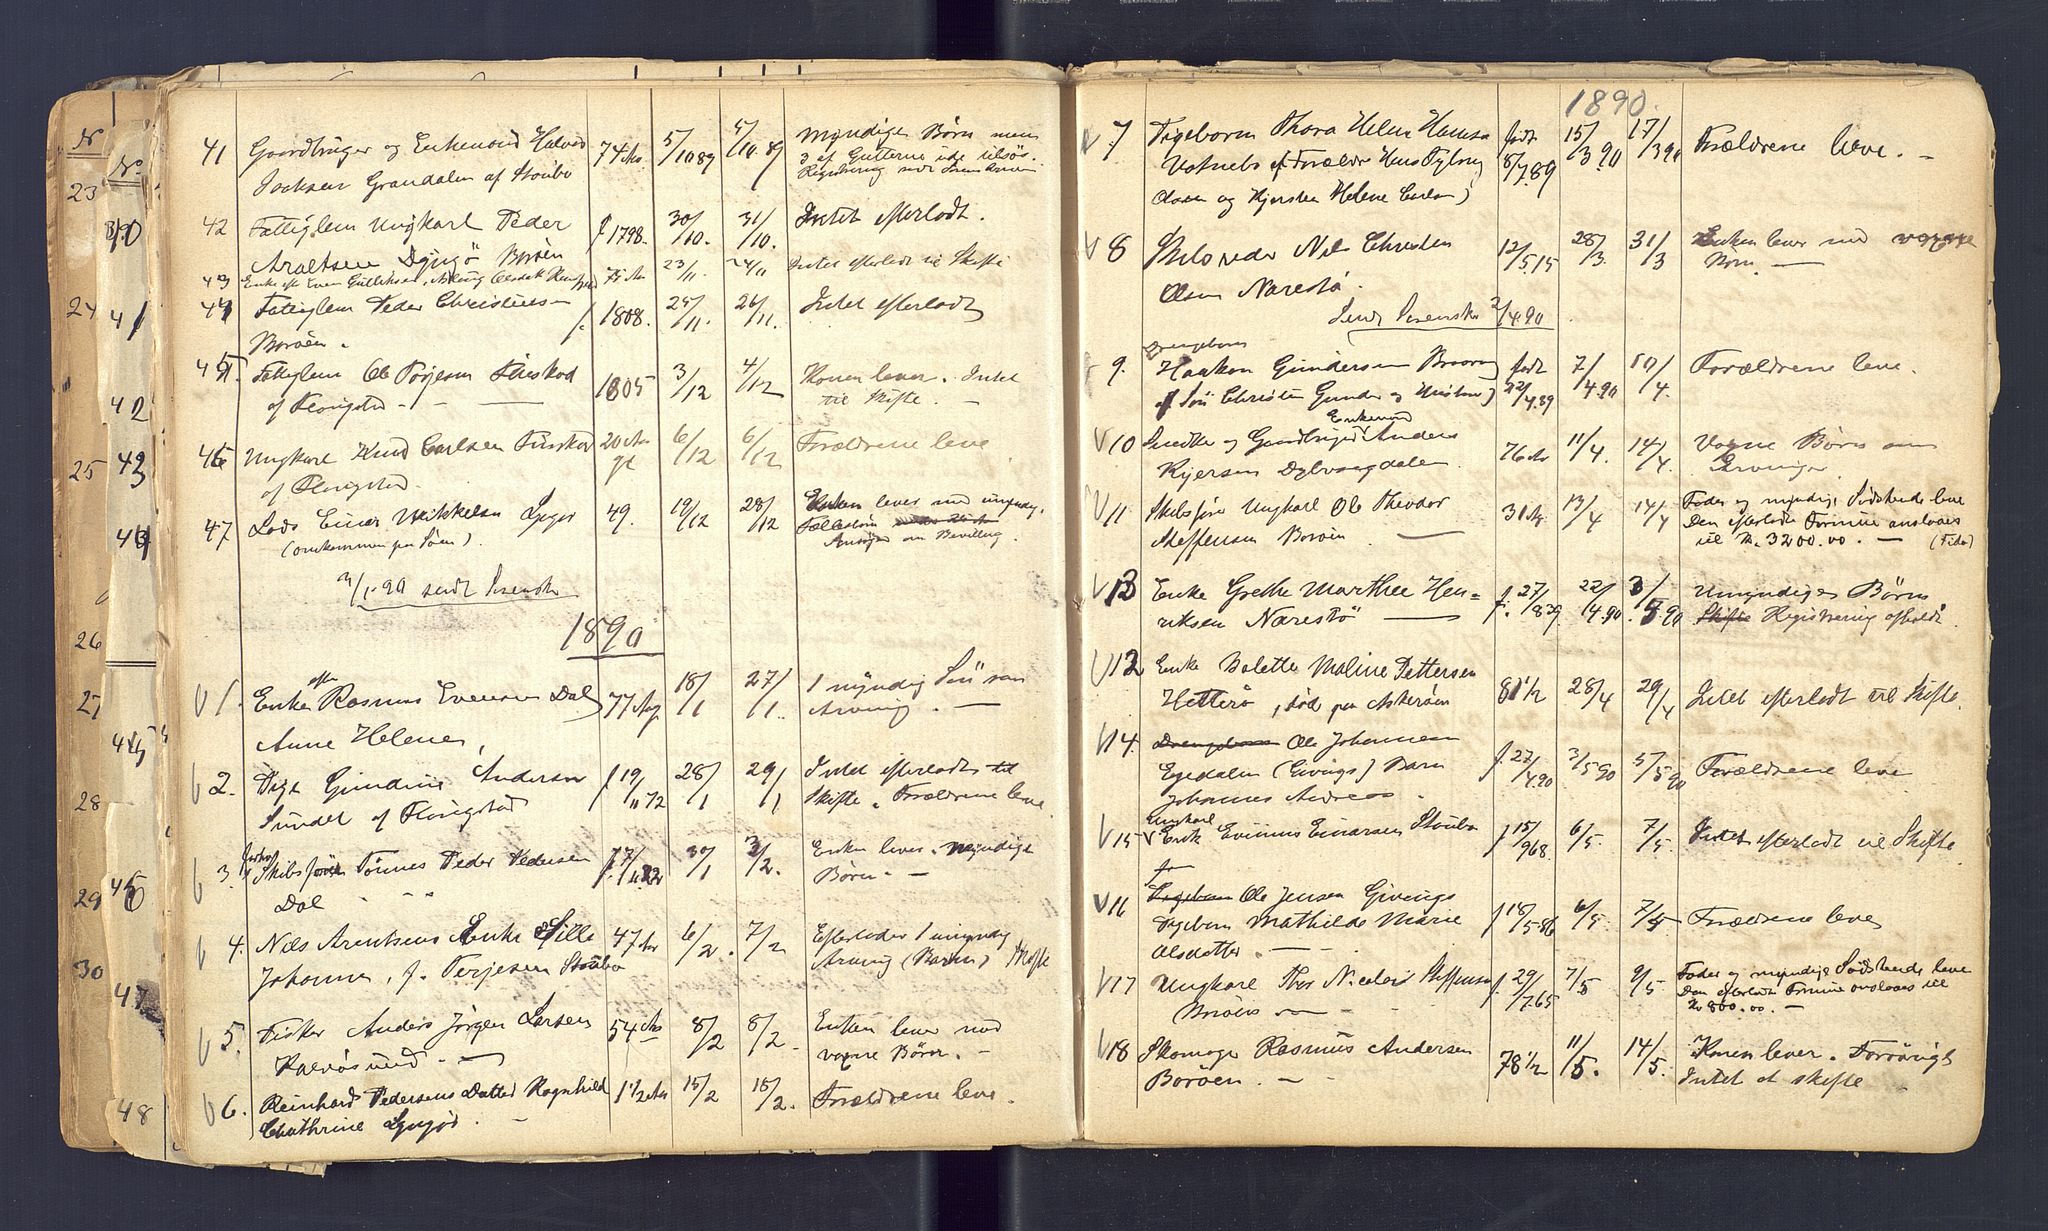 41 Gaardbruger og Enkemand Halvor 74 Aar 5/10 89 5/10 89 Myndige Børn men
Jacksen Grandalen af Stoubø 3 af Gutterne ude tilsøs.
Registrering
42 Fattiglem Ungkarl Peder f 1798. 30/10. 31/10. Intet efterladt.
Araltsen Dÿngö Borøen
43 Enke eft Even Gulliksen, Aslaug Olsdatt 75 Aar 23/11. 24/11 Intet efterladt til Skifte
44 Fattiglem Peder Christensen f. 1808. 25/11. 26/11. Intet efterladt
Borøen.
45. Fattiglem Ole Torjesen 1805 3/12 4/12 Konen lever. Intet
af Flougstad til Skifte.
46 Ungkarl Knud Carlsen 20 Aar gl 6/12 6/12 Forældrene leve
af Flougstad.
47 Lods Einar Mikkelsen Lyngør 49. 19/12 28/12 Enken lever med umyndig.
(omkommen paa Søen). Fællesbørn
Ansøger om Bevilling
2/1.90 sendt Sorensk
1890
1. Enke efter Rasmus Evensen Dal 77 Aar 18/1 27/1. 1 myndig Søn som
Anne Helene, Arving.
2. Pige Gundine Andersen f 19/11 72 28/1 29/1 Intet efterladt til
Sundet af Flougstad Skifte. Forældrene leve
3. forhv Skibsfører Tønnes Peder Pedersen f. 30/1 3/2. Enken lever. Myndige
Dal Børn.
4. Nils Arentsens Enke Sille 47 Aar 6/2. 7/2 Efterlader 1 umyndig
Johanne, f. Terjesen Stoubø Arving (Barn) Skifte
5. Fisker Anders Jørgen Larsen 54 Aar 8/2 8/2. Enken lever med
Kalvøsund voxne Børn.
6. Reinhard Pedersens Datter Ragnhild 1 1/2 Aar 15/2 15/2. Forældrene leve.
Cathrine Lyngør.
1890.
7. Pigebarn Thora Helen Hansen født 8/7.89 15/3 90 17/3 90 Forældrene leve.
Votnebo af Forældre Hans Tybring
Olsen og Kjersten Helene Carlsen)
8 Skibsreder Nils Christen 12/5.15 28/3. 31/3 Enken lever med voxne
Olsen Narestø. Børn
Sendt Sorensk 2/4.90
Drengebarn
9. Haakon Gundersen født 22/4.89 7/4.90 10/4. Forældrene leve.
af Søn Christen Gunder og
10 Snedker og Gaardbruger Enkemand Anders 76 Aar 11/4. 14/4 Voxne Børn som
Kjersen Dybvaagdalen. Arvinger
11 Skibsfører Ungkarl Ole Theodor 31 Aar 13/4 14/4 Fader og myndige Sødskende leve
Steffensen Borøen Den efterladte Formue anslaaes
til Kr. 3200.00.
13 Enke Grethe Marthee Hen= f. 27/8 39 22/4.90 3/5 90 Umyndige Børn
riksen Narestö Skifte Registrering afholdt.
12 Enke Bolette Maline Pettersen 81 1/2 28/4 29/4 Intet efterladt til Skifte.
Hetterø, død paa Askerøen
14. Drengebarn Ole Johannesen f. 27/4.90 3/5 90 5/5 90 Forældrene leve
Egedalen (Givings) Barn
Johannes Andreas.
15 Ungkarl Enke Evinus Einarsen Stoubø f 15/9 68. 6/5. 7/5. Intet efterladt til Skifte.
16 Pigebarn Ole Jensen Givings
Pigebarn Mathilde Marie f 18/5-86 6/5. 7/5 Forældrene leve
Olsdatter
17 Ungkarl Thor Nicolai Steffensen f. 29/7.65 7/5 9/5 Fader og myndige Sødskende leve
Borøen Den efterladte Formue anslaaes til
Kr 800.00.
18 Skomager Rasmus Andersen 78 1/2 11/5. 14/5. Konen lever. Forøvrigt
Borøen. Intet at skifte
N
23
24
25
26
27
28
29
30
No
40
41
42
43
44
45
46
47
48